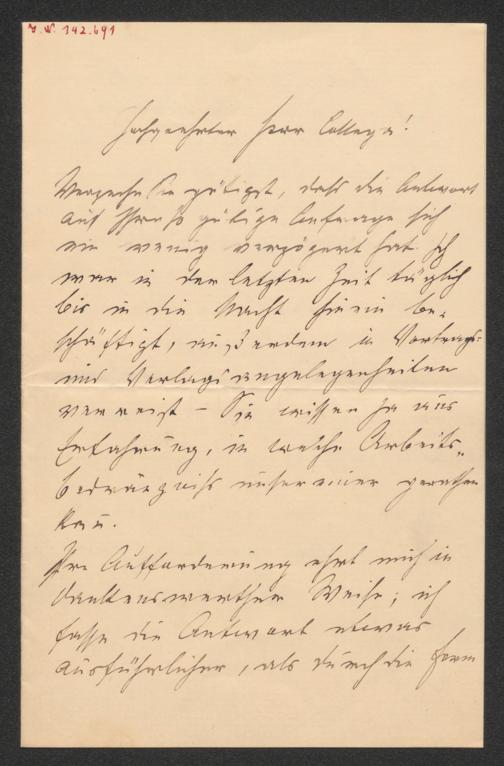 I.N. 142.691
Hochgeehrter Herr College!
Verzeihen Sie gütigst, daß die Antwort
auf Ihre so gütige Anfrage sich
ein wenig verzögert hat. Ich
war in der letzten Zeit täglich
bis in die Nacht hinein be-
schäftigt, außerdem in Vortrags-
und Verlagsangelegenheiten
verreist – Sie wissen ja aus
Erfahrung, in welche Arbeits-
bedrängniß unsereiner gerathen
kann.
Ihre Aufforderung ehrt mich in
dankenswerther Weise; ich
fasse die Antwort etwas
ausführlicher, als durch die Form